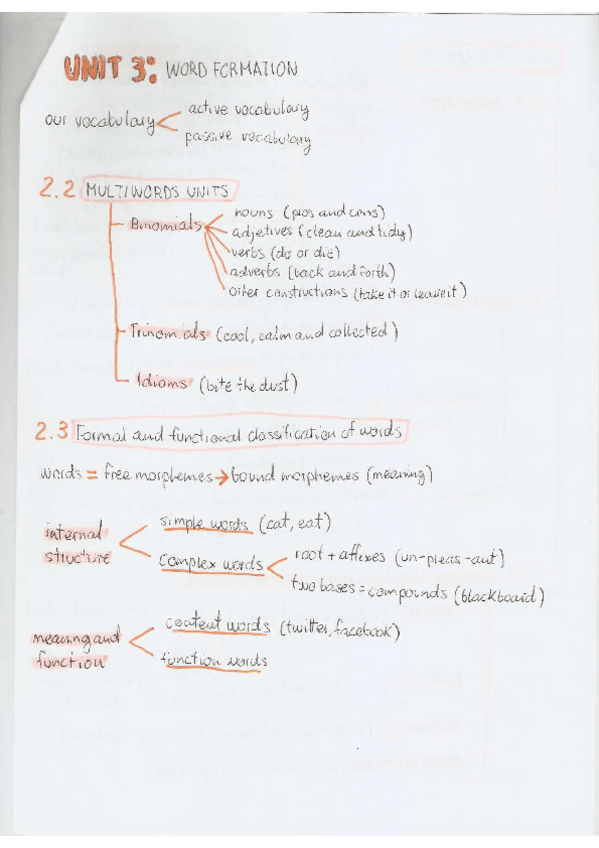 UNIT 3: WORD FORMATION
our vocabulary
active vocabulary
passive vocabulary
2.2 MULTIWORDS UNITS
Binomials
nouns (pros and cons)
adjetives (clean and tidy)
verbs (do or die)
adverbs (back and forth)
other constructions (take it or leave it)
Trinomials (cool, calm and collected)
Idioms (bite the dust)
2.3 Formal and functional classification of words
words = free morphemes → bound morphemes (meaning)
internal structure
simple words (cat, eat)
complex words
root + affixes (un-pleas-ant)
two bases = compounds (blackboard)
meaning and function
content words (twitter, facebook)
function words